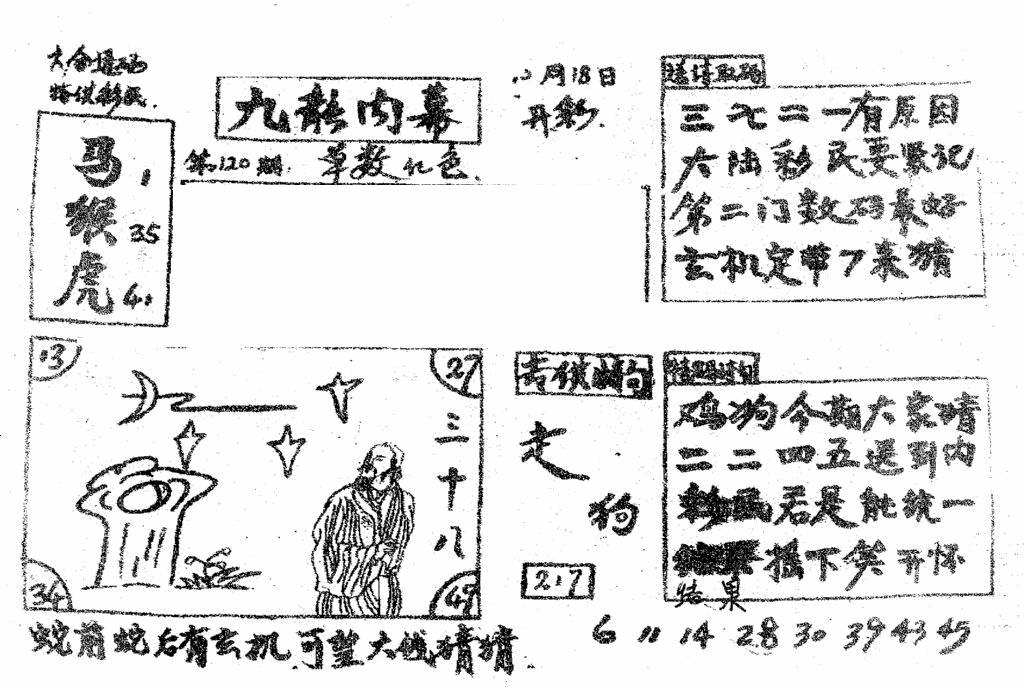 九龙内幕
第120期 草数 红色
12月18日
开彩
马 1
猴 35
虎 41
三七二一有原因
大陆彩民要紧记
第二门数码最好
玄机定带7来猜
13
27
三十八
34
49
蛇前蛇后有玄机 可望大钱猜猜
走
狗
217
鸡狗今期大家猜
二二四五送到内
彩民若是能统一
摇下笑开怀
结果
6 11 14 28 30 39 43 45